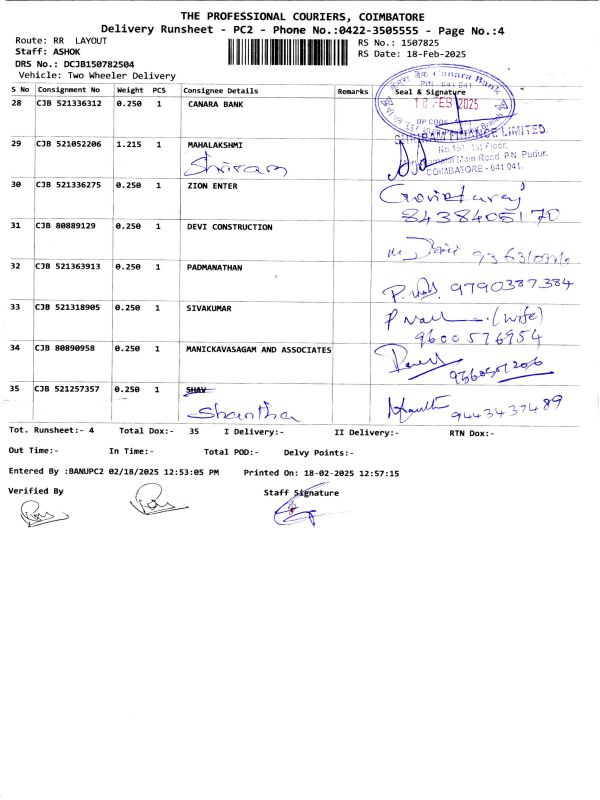 THE PROFESSIONAL COURIERS, COIMBATORE
Delivery Runsheet - PC2 - Phone No.:0422-3505555 - Page No.:4
Route: RR LAYOUT
RS No.: 1507825
Staff: ASHOK
RS Date: 18-Feb-2025
DRS No.: DCJB150782504
Vehicle: Two Wheeler Delivery
S No Consignment No Weight PCS Consignee Details Remarks Seal & Signature
28 CJB 521336312 0.250 1 CANARA BANK
Canara Bank
PIN - 641 041
18 FEB 2025
DP CODE
29 CJB 521052206 1.215 1 MAHALAKSHMI
Shriram
FINANCE LIMITED.
No.151, 1st Floor,
Main Road, P.N. Pudur,
COIMBATORE - 641 041.
30 CJB 521336275 0.250 1 ZION ENTER
Govintaraj
8438408170
31 CJB 80889129 0.250 1 DEVI CONSTRUCTION
32 CJB 521363913 0.250 1 PADMANATHAN
9790387384
33 CJB 521318905 0.250 1 SIVAKUMAR
(wife)
9600576954
34 CJB 80890958 0.250 1 MANICKAVASAGAM AND ASSOCIATES
35 CJB 521257357 0.250 1 SHAV
Shantha
9443437489
Tot. Runsheet:- 4 Total Dox:- 35 I Delivery:- II Delivery:- RTN Dox:-
Out Time:- In Time:- Total POD:- Delvy Points:-
Entered By :BANUPC2 02/18/2025 12:53:05 PM Printed On: 18-02-2025 12:57:15
Verified By Staff Signature